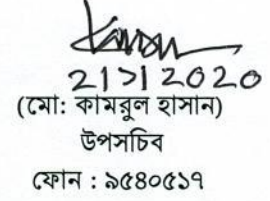 21/1/2020
(মো: কামরুল হাসান)
উপসচিব
ফোন : ৯৫৪০৫১৭